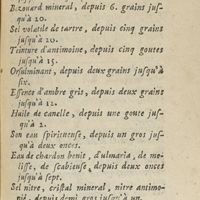 Bezouard mineral, depuis 6. grains jus-
qu'à 20.
Sel volatile de tartre, depuis cinq grains
jusqu'à 20.
Teinture d'antimoine, depuis cinq goutes
jusqu'à 15.
Orfulminant, depuis deux grains jusqu'à
six.
Essence d'ambre gris, depuis deux grains
jusqu'à 12.
Huile de canelle, depuis une goute jus-
qu'à 2.
Son eau spiritueuse, depuis un gros jus-
qu'à deux onces.
Eau de chardon benit, d'ulmaria, de me-
lisse, de scabieuse, depuis deux onces
jusqu'à sept.
Sel nitre, cristal mineral, nitre antimo-
nié, depuis demi gros jusqu'à un.